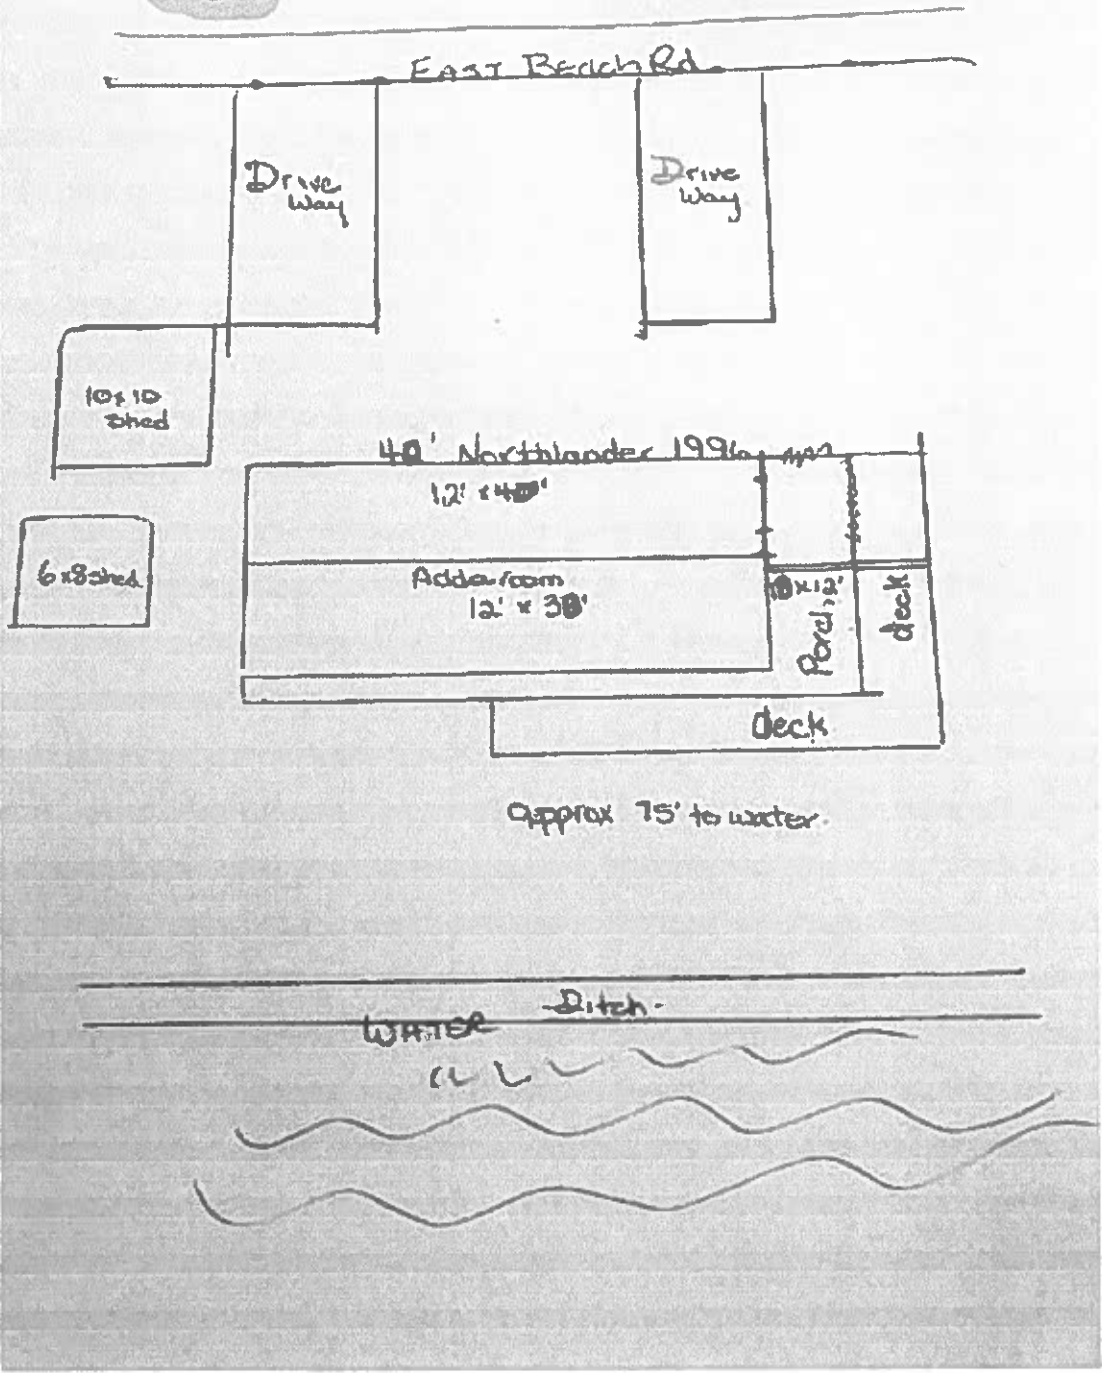 EAST Beach Rd.
Drive
Way
Drive
Way
10x10
Shed
40' Northlander 1996
12' x 40'
6x8 shed
Addaroom
12' x 30'
10x12'
Porch
deck
deck
approx 75' to water.
-Ditch-
WATER